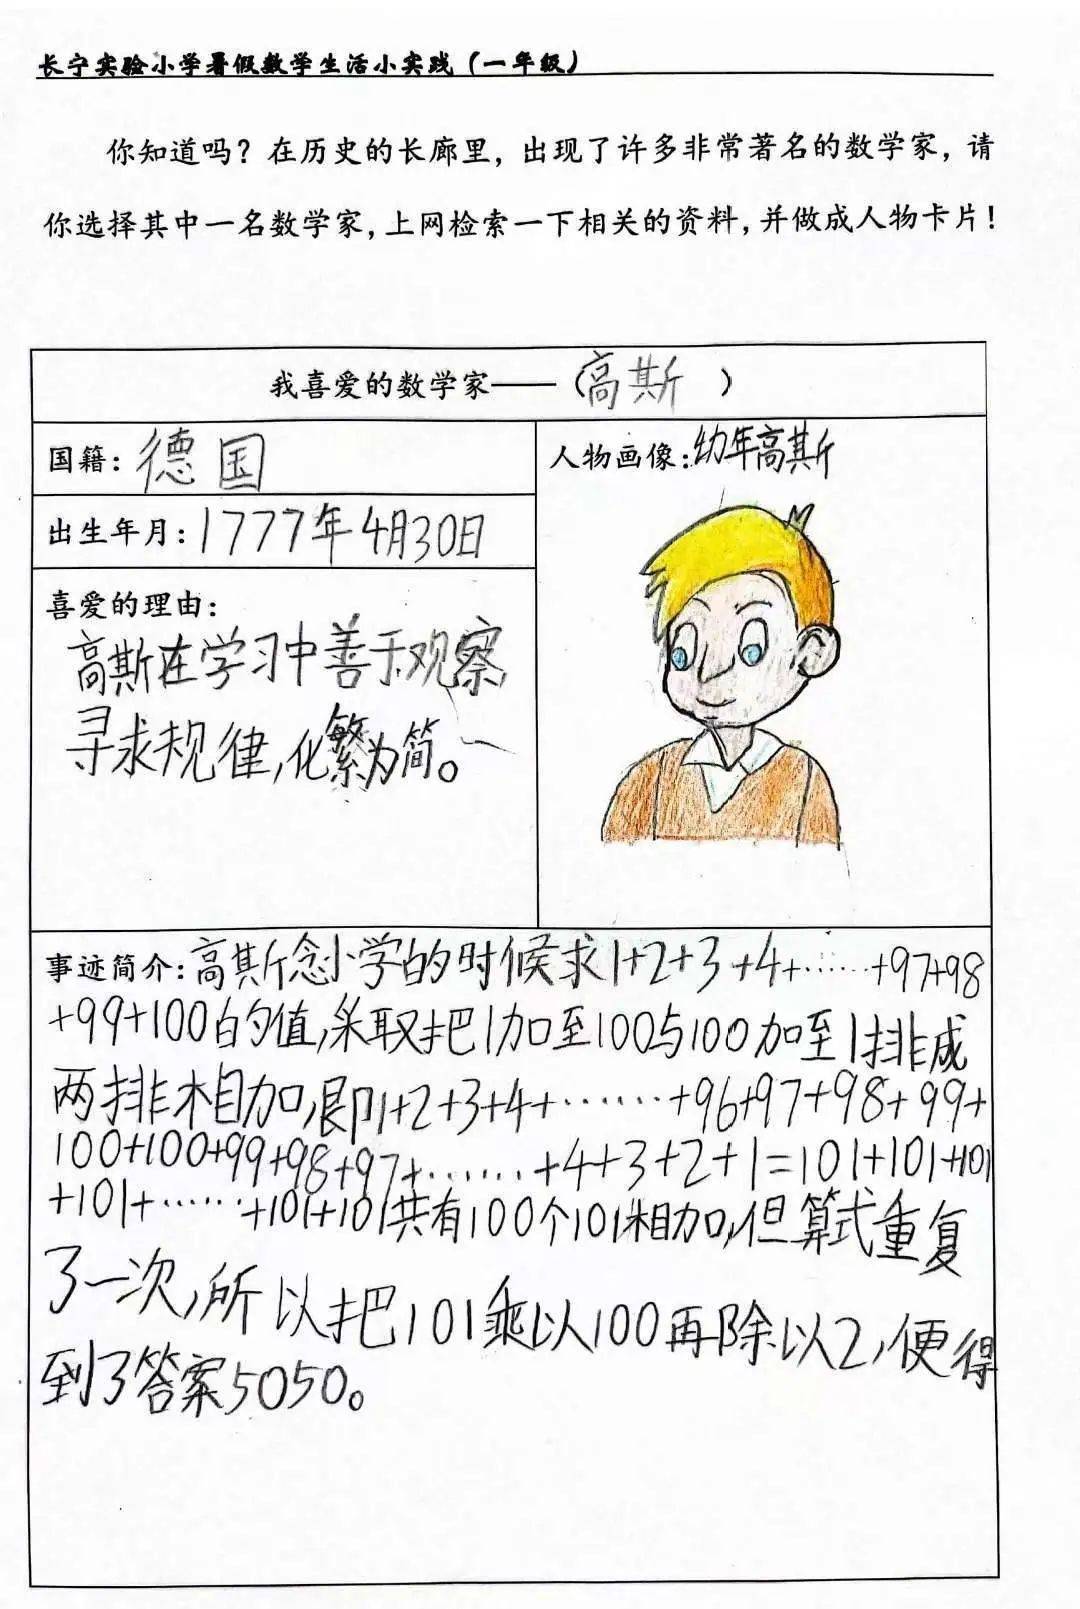 长宁实验小学暑假数学生活小实践（一年级）
你知道吗？在历史的长廊里，出现了许多非常著名的数学家，请
你选择其中一名数学家，上网检索一下相关的资料，并做成人物卡片！
我喜爱的数学家——（高斯）
国籍：德国
人物画像：幼年高斯
出生年月：1777年4月30日
喜爱的理由：
高斯在学习中善于观察，
寻求规律，化繁为简。
事迹简介：高斯念小学的时候求1+2+3+4+……+97+98
+99+100的值，采取把1加至100与100加至1排成
两排相加，即1+2+3+4+……+96+97+98+99+
100+100+99+98+97+……+4+3+2+1=101+101+101
+101+……+101+101共有100个101相加，但算式重复
了一次，所以把101乘以100再除以2，便得
到了答案5050。